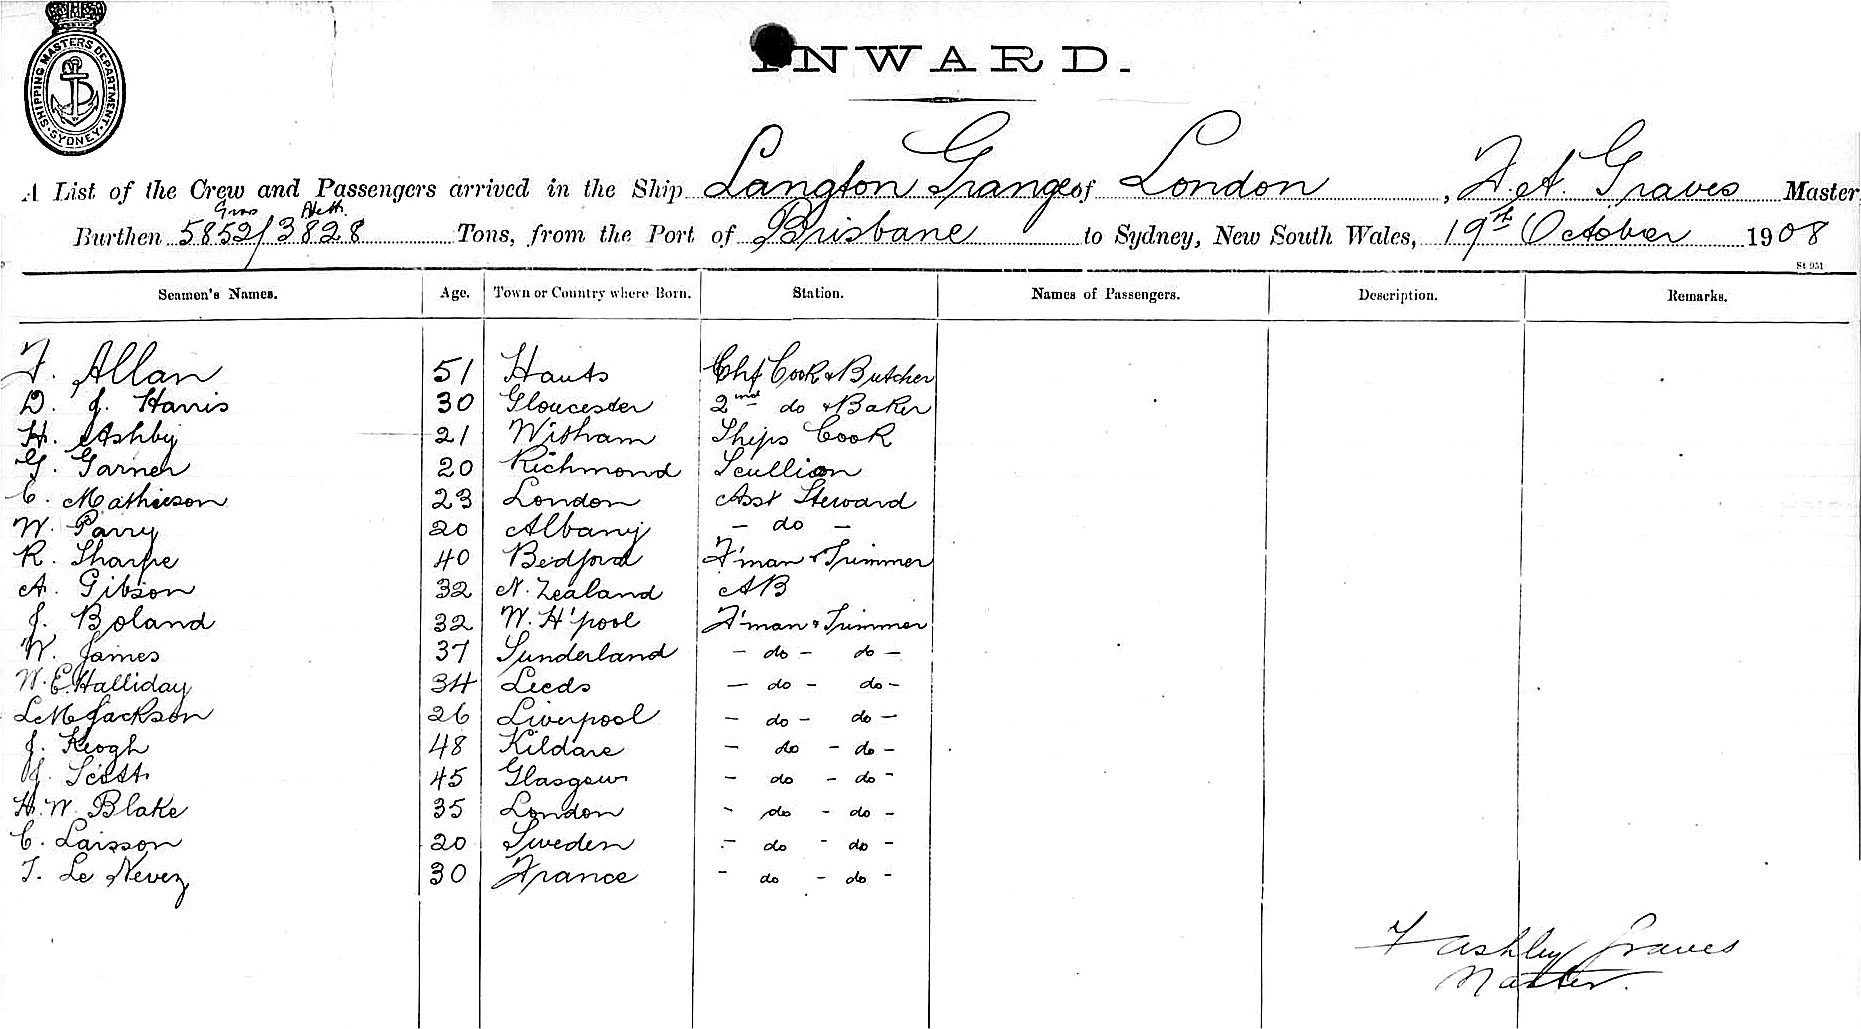 SHIPPING MASTERS DEPARTMENT · SYDNEY ·
INWARD.
A List of the Crew and Passengers arrived in the Ship Langton Grange of London, F. A. Graves Master
Gross Nett.
Burthen 5852/3828 Tons, from the Port of Brisbane to Sydney, New South Wales, 19th October 1908
St 951
Seamen's Names. Age. Town or Country where Born. Station. Names of Passengers. Description. Remarks.
F. Allan 51 Hants Chf Cook & Butcher
D. J. Harris 30 Gloucester 2nd do & Baker
H. Ashby 21 Witham Ships Cook
G. Garner 20 Richmond Scullion
C. Mathieson 23 London Asst Steward
W. Parry 20 Albany - do -
R. Sharpe 40 Bedford F'man & Trimmer
A. Gibson 32 N. Zealand AB
J. Boland 32 W. H'pool F'man & Trimmer
W. James 37 Sunderland - do - do -
W. E. Halliday 34 Leeds - do - do -
L M Jackson 26 Liverpool - do - do -
J. Keogh 48 Kildare - do - do -
J. Scott 45 Glasgow - do - do -
H. W. Blake 35 London - do - do -
C. Larsson 20 Sweden - do - do -
T. Le Nevez 30 France - do - do -
F Ashley Graves
Master.